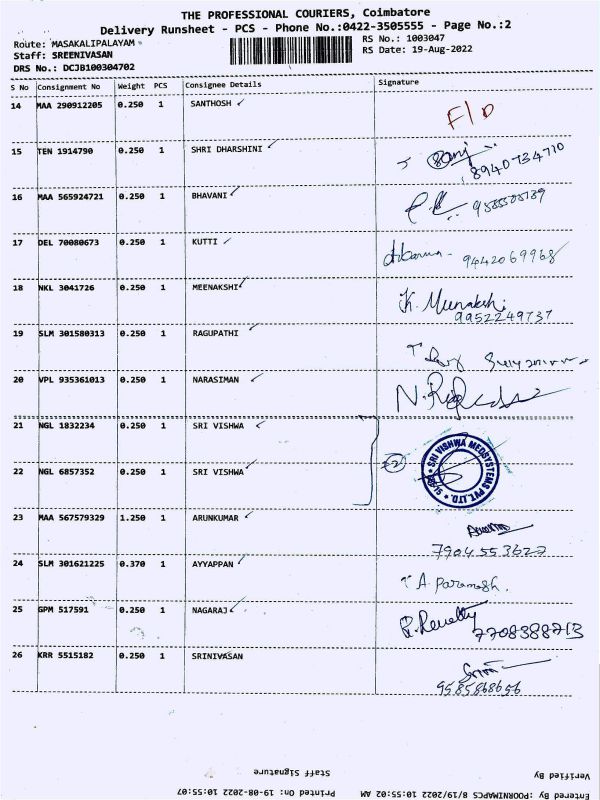 THE PROFESSIONAL COURIERS, Coimbatore
Delivery Runsheet - PCS - Phone No.:0422-3505555 - Page No.:2
Route: MASAKALIPALAYAM
RS No.: 1003047
Staff: SREENIVASAN
RS Date: 19-Aug-2022
DRS No.: DCJB100304702
S No Consignment No Weight PCS Consignee Details Signature
14 MAA 290912205 0.250 1 SANTHOSH
F/D
15 TEN 1914790 0.250 1 SHRI DHARSHINI
8940734710
16 MAA 565924721 0.250 1 BHAVANI
17 DEL 70080673 0.250 1 KUTTI
9442069968
18 NKL 3041726 0.250 1 MEENAKSHI
K. Meenakshi
9952249737
19 SLM 301580313 0.250 1 RAGUPATHI
20 VPL 935361013 0.250 1 NARASIMAN
21 NGL 1832234 0.250 1 SRI VISHWA
22 NGL 6857352 0.250 1 SRI VISHWA
2
SRI VISHWA MEDSYSTEMS PVT. LTD.
23 MAA 567579329 1.250 1 ARUNKUMAR
7904553622
24 SLM 301621225 0.370 1 AYYAPPAN
A. Paramesh.
25 GPM 517591 0.250 1 NAGARAJ
7708388713
26 KRR 5515182 0.250 1 SRINIVASAN
9585868656
Verified By
Staff Signature
Entered By :POORNIMAPCS 8/19/2022 10:55:02 AM
Printed On: 19-08-2022 10:55:07